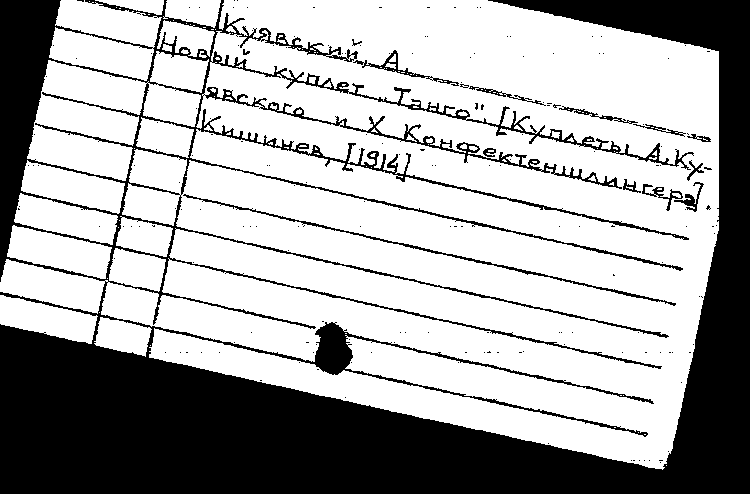 Куявский, А.
Новый куплет „Танго". [Куплеты А. Ку-
явского и Х Конфектеншлингера].
Кишинев, [1914]